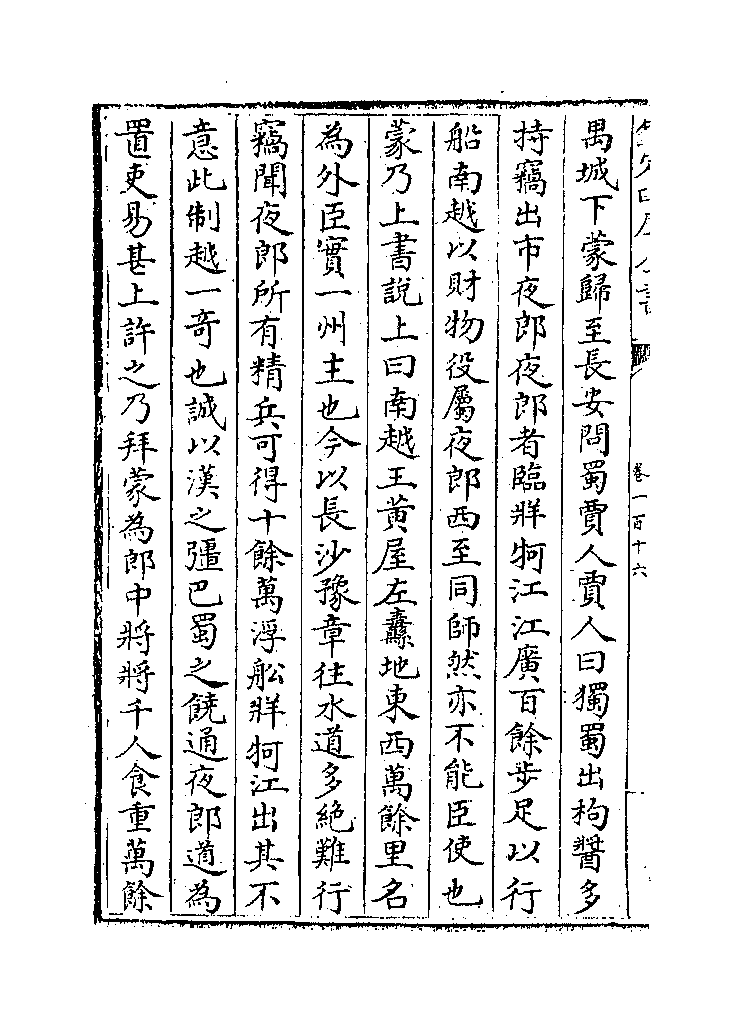 卷一百十六
禺城下蒙歸至長安問蜀賈人賈人曰獨蜀出枸醬多
持竊出市夜郎夜郎者臨牂牱江江廣百餘步足以行
船南越以財物役屬夜郎西至同師然亦不能臣使也
蒙乃上書說上曰南越王黃屋左纛地東西萬餘里名
為外臣實一州主也今以長沙豫章往水道多絶難行
竊聞夜郎所有精兵可得十餘萬浮舩牂牱江出其不
意此制越一奇也誠以漢之彊巴蜀之饒通夜郎道為
置吏易甚上許之乃拜蒙為郎中將將千人食重萬餘